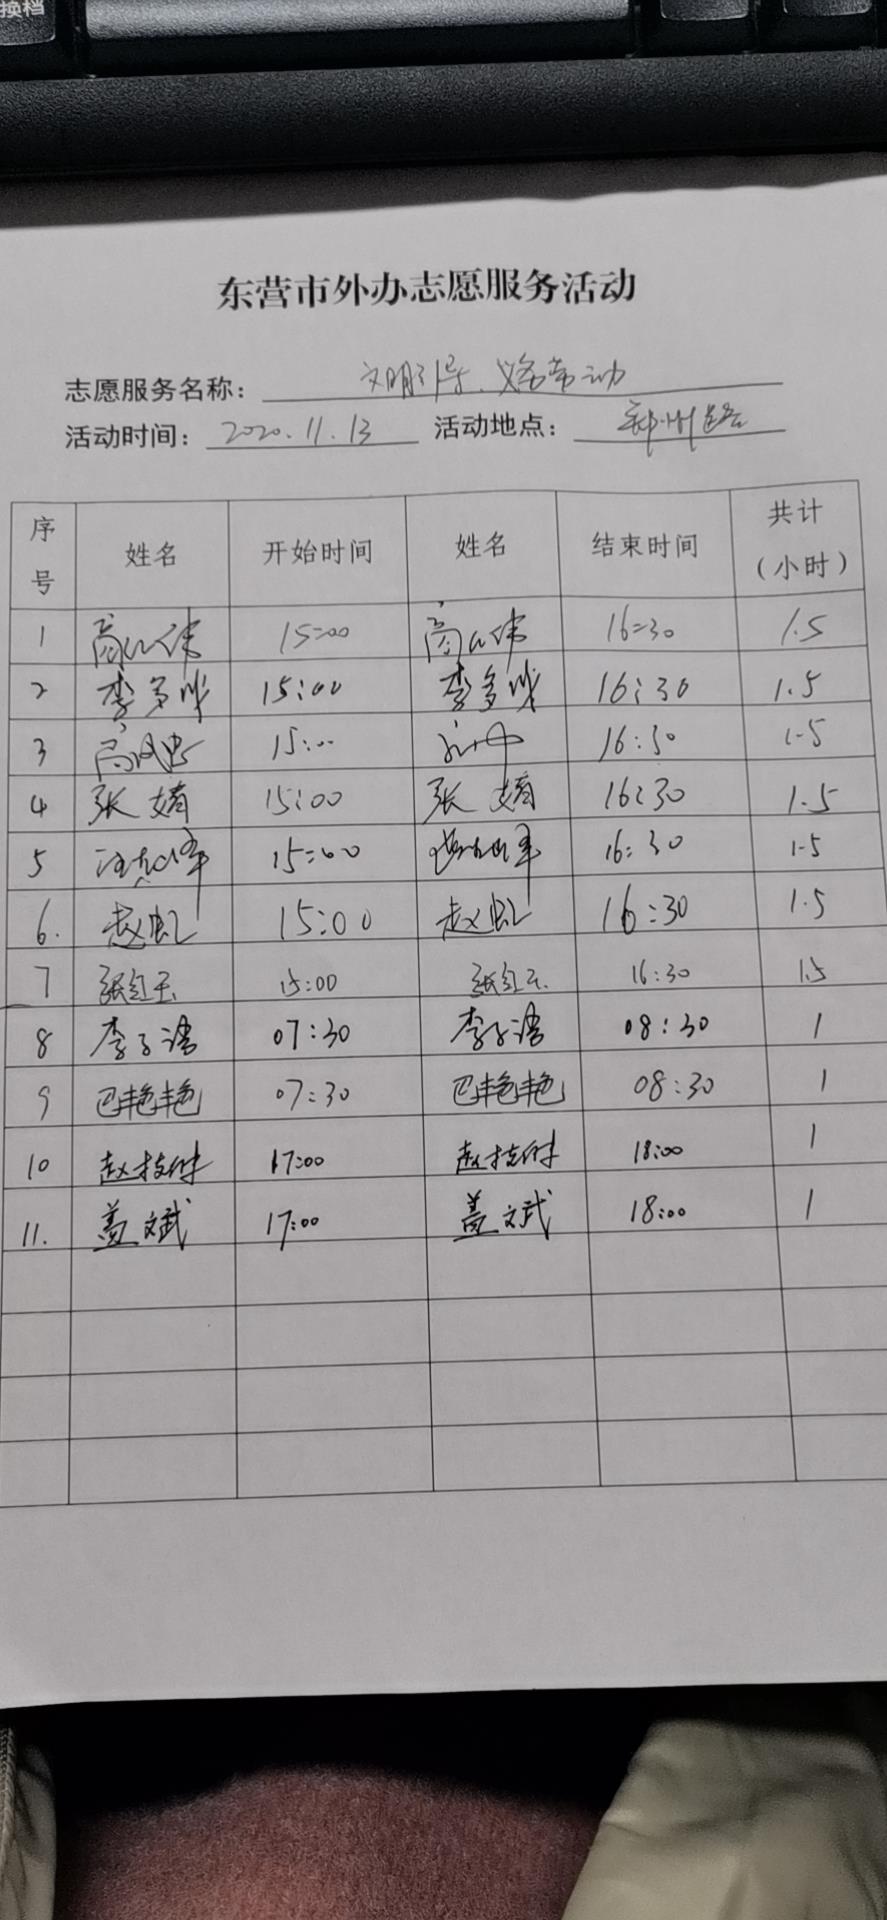 换档
东营市外办志愿服务活动
志愿服务名称： 文明引导、义务劳动
活动时间： 2020.11.13 活动地点： 郑州路
序号 姓名 开始时间 姓名 结束时间 共计（小时）
1 15:00 16:30 1.5
2 李 15:00 李 16:30 1.5
3 15:00 16:30 1.5
4 张婧 15:00 张婧 16:30 1.5
5 15:00 16:30 1.5
6. 赵虹 15:00 赵虹 16:30 1.5
7 张红玉 15:00 张红玉 16:30 1.5
8 李子涛 07:30 李子涛 08:30 1
9 巴艳艳 07:30 巴艳艳 08:30 1
10 赵 17:00 赵 18:00 1
11. 盖文斌 17:00 盖文斌 18:00 1